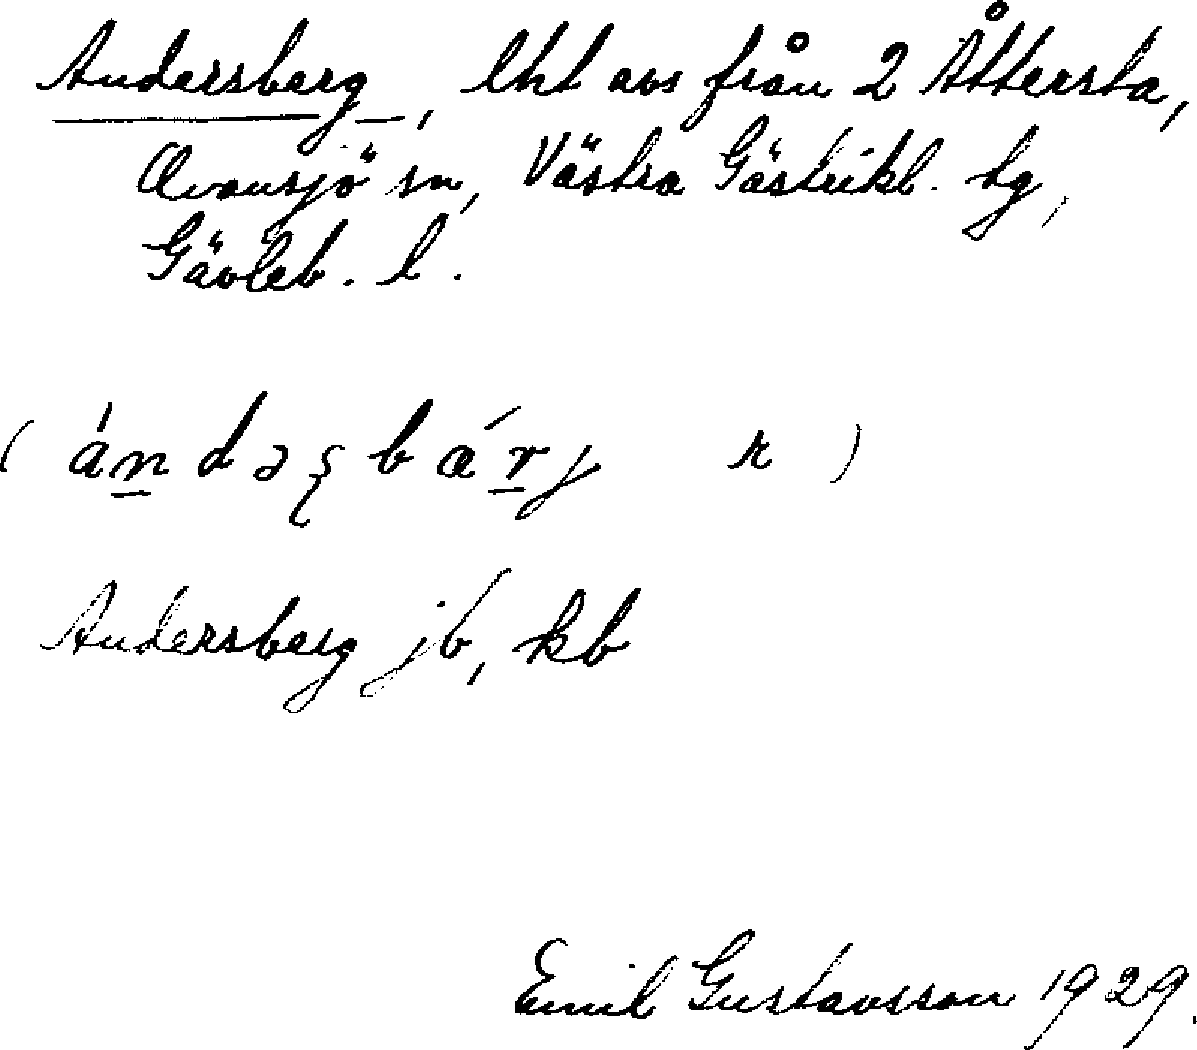 Andersberg, lht avs från 2 Åttersta,
Ovansjö sn, Västra Gästrikl. tg,
Gävleb. l.
Andersberg jb, kb
Emil Gustavsson 1929.